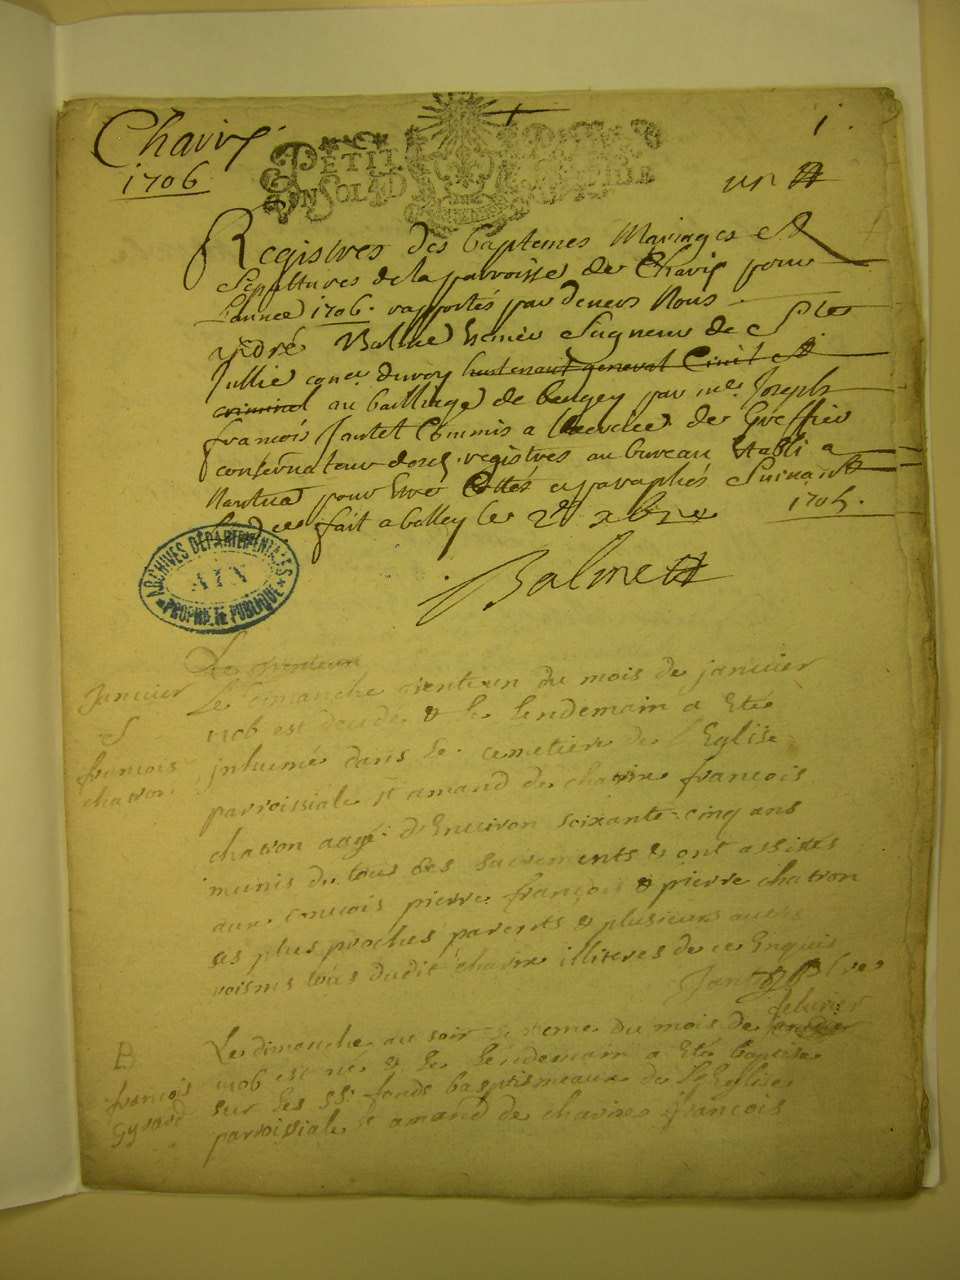 Chavix
1706
PETIT
EN SOL 4 D
1.
un
Registres des baptemes Mariages et
Sepultures de la parroisse de Chavix pour
Lannee 1706. rapportés par deuers Nous
André Balme Seigneur de Ste
Jullie con.er du roy lieutenant general Ciuil et
criminel au bailliage de beugey par me. Joseph
francois Jantet Commis a lexercice de Greffier
conseruateur desd. registres au bureau Etabli a
Nantua pour estre Cottés et paraphés Suiuant
fait a belley le 2e xbre 1705.
Balme
ARCHIVES DÉPARTEMENTALES
AIN
PROPRIÉTÉ PUBLIQUE
Janvier
S
francois
chatron
Le dimanche trente un du mois de janvier
1706 est decedé & le lendemain a Eté
inhumé dans le cemetiere de l'Eglise
parroissiale st amand de chavix françois
chatron aagé d'Enuiron soixante-cinq ans
munis du tous les sacrements & ont assistés
aux conuois pierre, françois & pierre chatron
ses plus proches parents & plusieurs autres
voisins tous dudit chavix illiteres de ce Enquis
B
francois
Gyrard
feburier
Le dimanche au soir du mois de janvier
1706 est né & le lendemain a Eté baptisé
sur les SS. fonds baptismeaux de l'Eglise
parroissiale st amand de chavix françois